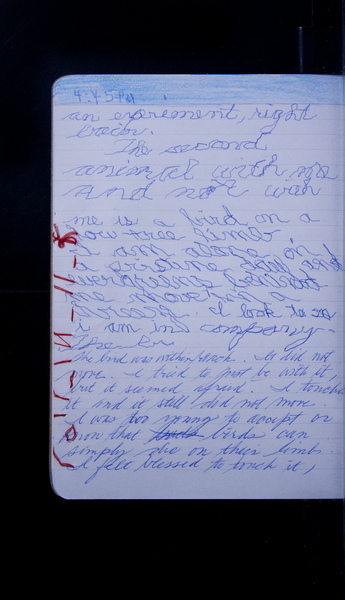 an experement, right
The second
animal with me
and not with
me is a bird on a
low tree limb.
I am alone on
a pristine day and
everything behind
me moves in a
I look to see
i am in company.
The bird was within reach. It did not
move. I tried to just be with it,
but it seemed afraid. I touched
it, and it still did not move.
I was too young to accept or
know that birds birds can
simply die on their limb.
I felt blessed to touch it,